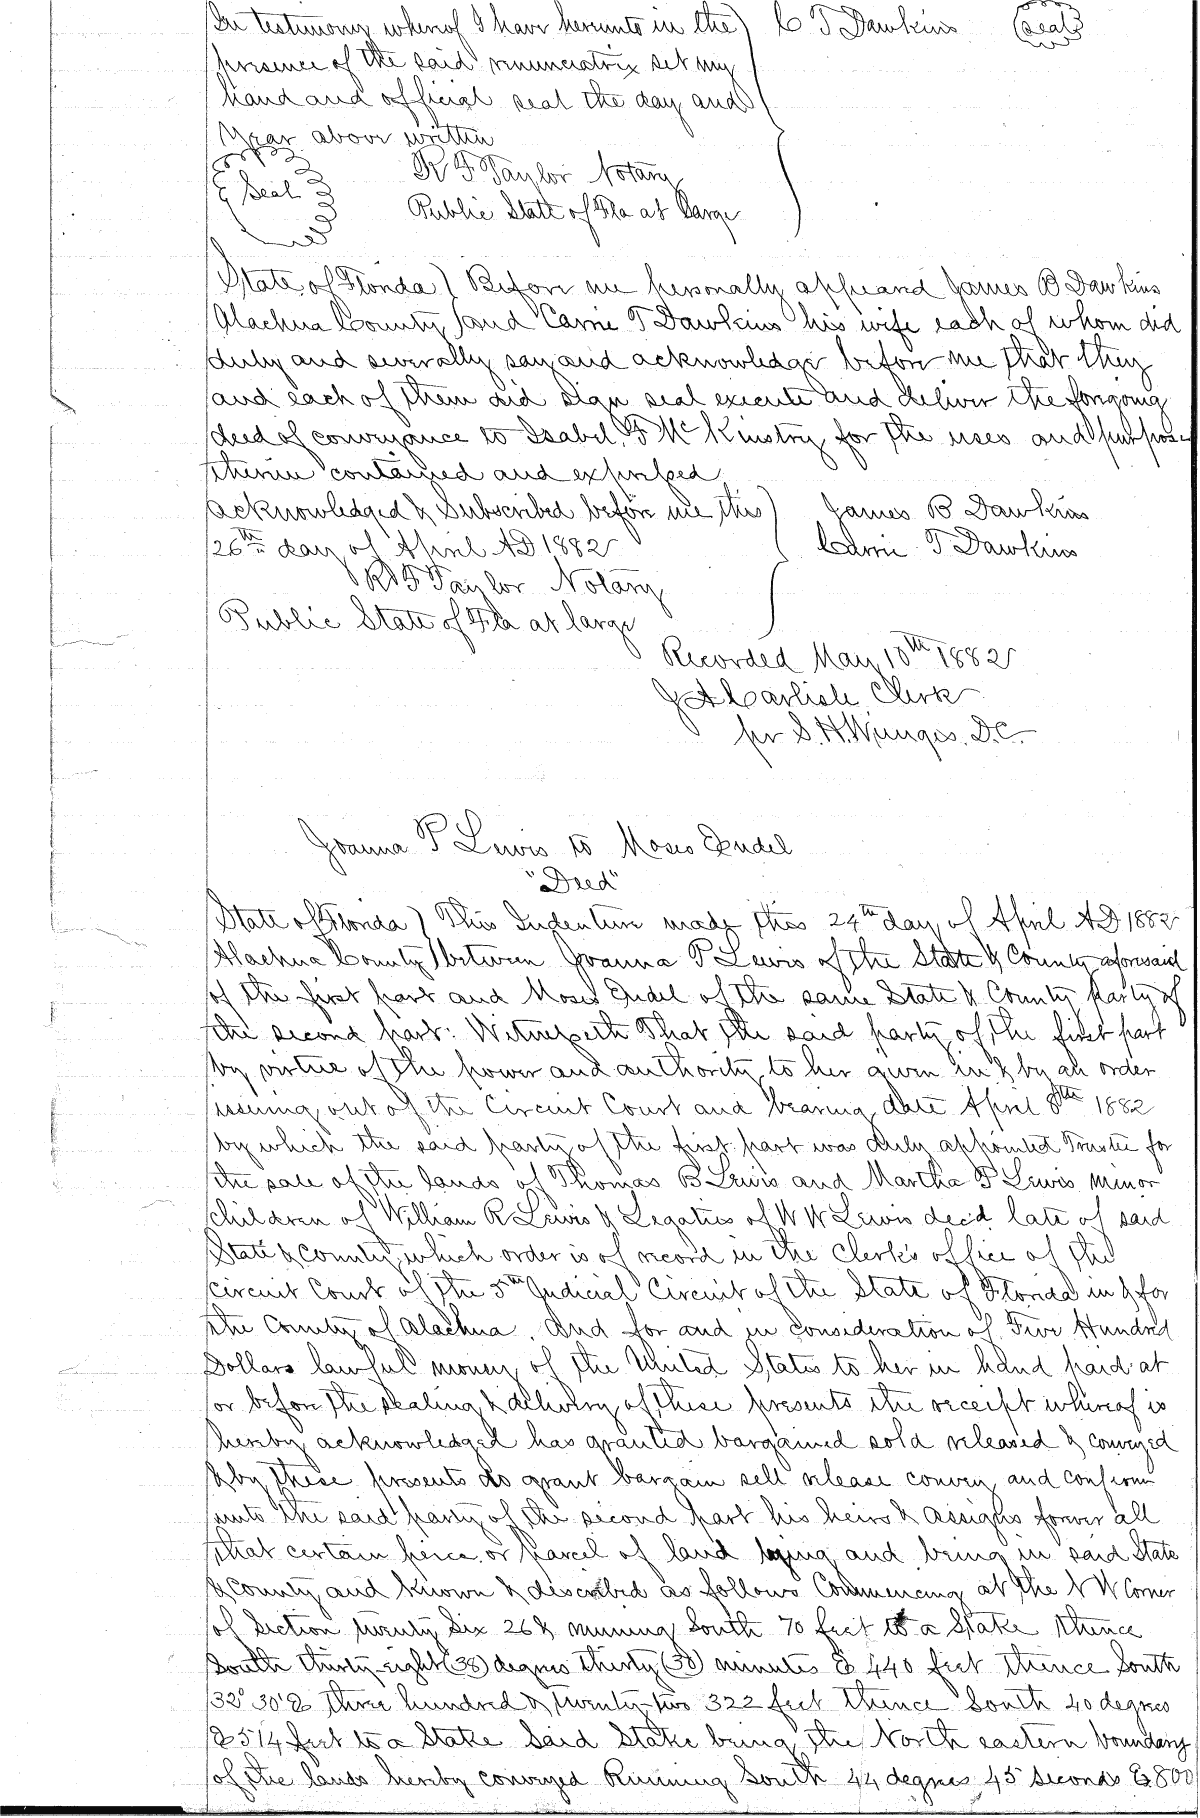 In testimony whereof I have hereunto in the ) C T Dawkins (Seal)
presence of the said renunciatrix set my
hand and official seal the day and
Year above written
Seal R F Taylor Notary
Public State of Fla at Large
State of Florida ) Before me personally appeared James B Dawkins
Alachua County ) and Carrie T Dawkins his wife each of whom did
duly and severally say and acknowledge before me that they
and each of them did sign seal execute and deliver the foregoing
deed of conveyance to Isabel F McKinstry for the uses and purposes
therein contained and expressed
Acknowledged & Subscribed before me this ) James B Dawkins
26th day of April AD 1882 Carrie T Dawkins
R F Taylor Notary
Public State of Fla at large
Recorded May 10th 1882
J A Carlisle Clerk
per S. H. Wienges. D.C.
Joanna P Lewis to Moses Endel
"Deed"
State of Florida ) This Indenture made this 24th day of April AD 1882
Alachua County ) between Joanna P Lewis of the State & County aforesaid
of the first part and Moses Endel of the same State & County party of
the second part: Witnesseth That the said party of the first part
by virtue of the power and authority to her given in & by an order
issuing out of the Circuit Court and bearing date April 8th 1882
by which the said party of the first part was duly appointed Trustee for
the sale of the lands of Thomas B Lewis and Martha P Lewis minor
children of William R Lewis & Legatees of W W Lewis dec'd late of said
State & County, which order is of record in the Clerk's office of the
Circuit Court of the 5th Judicial Circuit of the State of Florida in & for
the County of Alachua. And for and in consideration of Five Hundred
Dollars lawful money of the United States to her in hand paid at
or before the sealing & delivery of these presents the receipt whereof is
hereby acknowledged has granted bargained sold released & conveyed
& by these presents do grant bargain sell release convey and confirm
unto the said party of the second part his heirs & assigns forever all
that certain peice or parcel of land lying and being in said State
& County and known & described as follows Commencing at the N W Corner
of Section twenty Six 26 & running South 70 feet to a Stake thence
South thirty-eight (38) degrees thirty (30) minutes E 440 feet thence South
32° 30' E three hundred & twenty-two 322 feet thence South 40 degrees
E 514 feet to a Stake Said Stake being the North eastern boundary
of the lands hereby conveyed Running South 44 degrees 45 seconds E 800